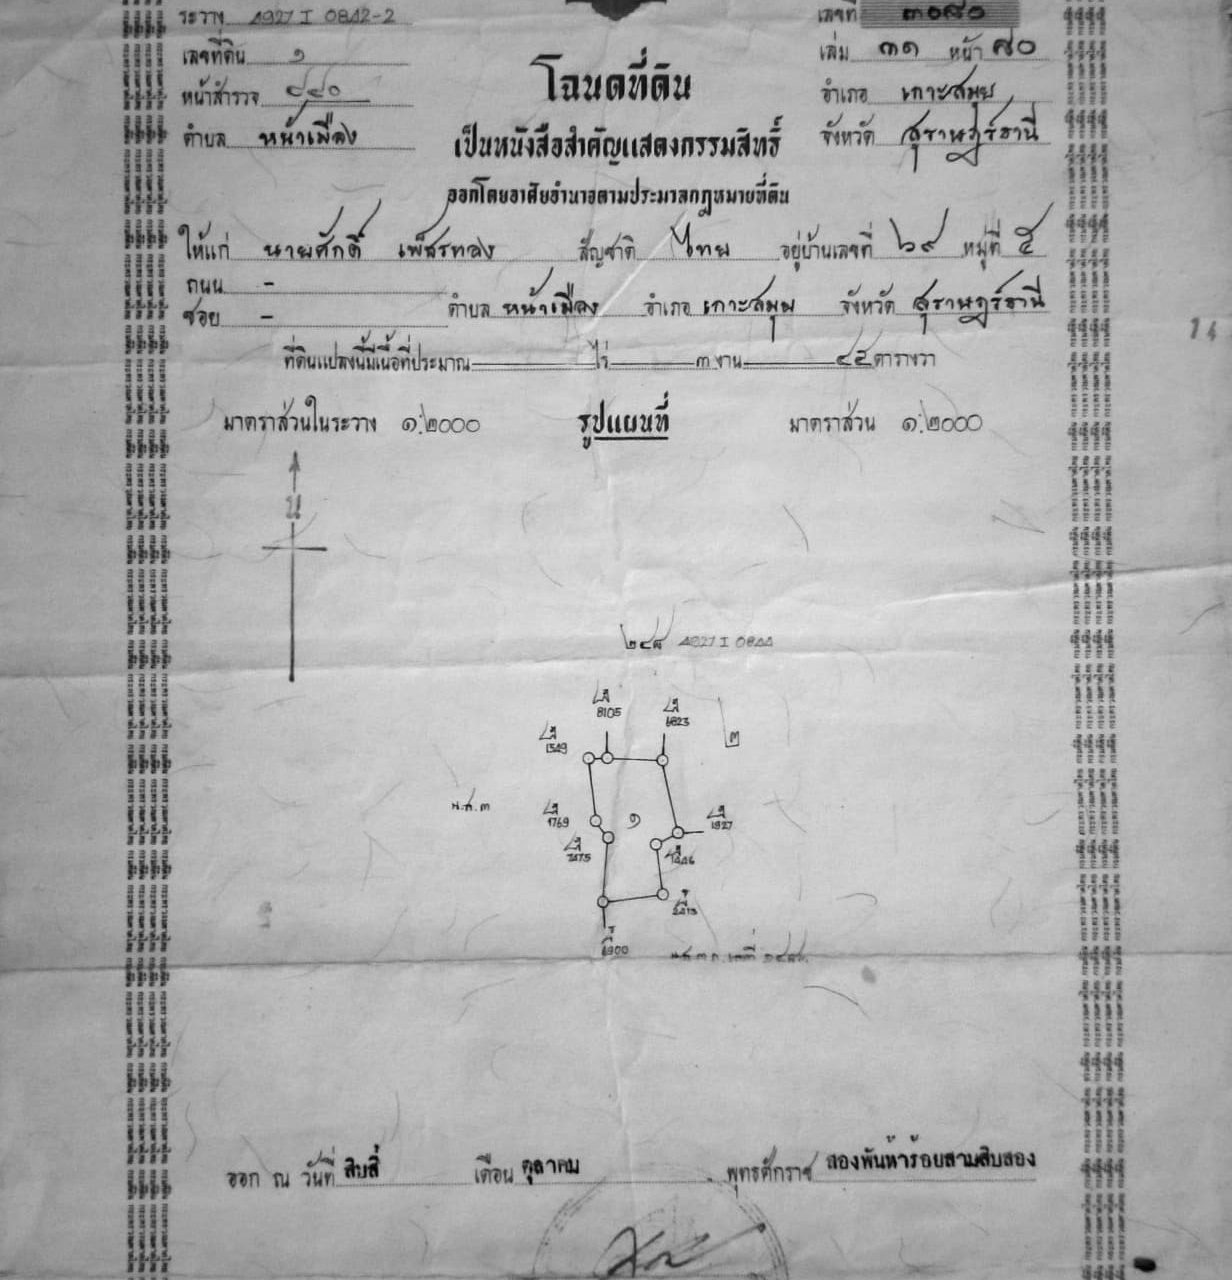 ระวาง 4927 I 0842-2 เลขที่ ๓๐๕๐
เลขที่ดิน ๑ เล่ม ๓๑ หน้า ๕๐
หน้าสำรวจ อำเภอ เกาะสมุย
ตำบล หน้าเมือง จังหวัด สุราษฎร์ธานี
โฉนดที่ดิน
เป็นหนังสือสำคัญแสดงกรรมสิทธิ์
ออกโดยอาศัยอำนาจตามประมวลกฎหมายที่ดิน
ให้แก่ นายศักดิ์ เพ็ชรทอง สัญชาติ ไทย อยู่บ้านเลขที่ ๖๙ หมู่ที่ ๕
ถนน -
ซอย - ตำบล หน้าเมือง อำเภอ เกาะสมุย จังหวัด สุราษฎร์ธานี
ที่ดินแปลงนี้มีเนื้อที่ประมาณ ไร่ ๓ งาน ๔๕ ตารางวา
มาตราส่วนในระวาง ๑:๒๐๐๐ รูปแผนที่ มาตราส่วน ๑:๒๐๐๐
น
๒๔๘ 4927 I 0844
8105
6823
๓
1349
น.ส.๓
1769
๑
1927
7475
1446
6900
ออก ณ วันที่ สิบสี่ เดือน ตุลาคม พุทธศักราช สองพันห้าร้อยสามสิบสอง